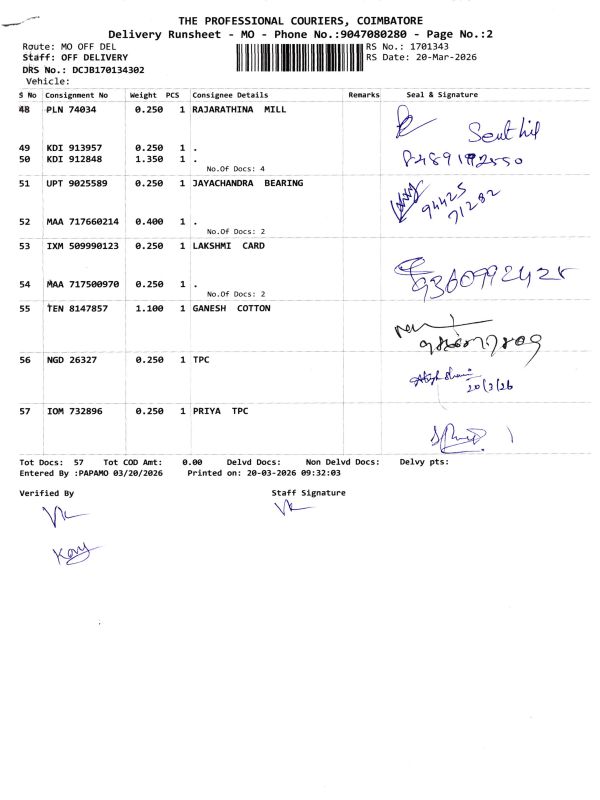 THE PROFESSIONAL COURIERS, COIMBATORE
Delivery Runsheet - MO - Phone No.:9047080280 - Page No.:2
Route: MO OFF DEL RS No.: 1701343
Staff: OFF DELIVERY RS Date: 20-Mar-2026
DRS No.: DCJB170134302
Vehicle:
S No Consignment No Weight PCS Consignee Details Remarks Seal & Signature
48 PLN 74034 0.250 1 RAJARATHINA MILL
49 KDI 913957 0.250 1 .
50 KDI 912848 1.350 1 .
No.Of Docs: 4
51 UPT 9025589 0.250 1 JAYACHANDRA BEARING
94425
71282
52 MAA 717660214 0.400 1 .
No.Of Docs: 2
53 IXM 509990123 0.250 1 LAKSHMI CARD
54 MAA 717500970 0.250 1 .
9360992428
No.Of Docs: 2
55 TEN 8147857 1.100 1 GANESH COTTON
56 NGD 26327 0.250 1 TPC
20/3/26
57 IOM 732896 0.250 1 PRIYA TPC
Tot Docs: 57 Tot COD Amt: 0.00 Delvd Docs: Non Delvd Docs: Delvy pts:
Entered By :PAPAMO 03/20/2026 Printed on: 20-03-2026 09:32:03
Verified By Staff Signature